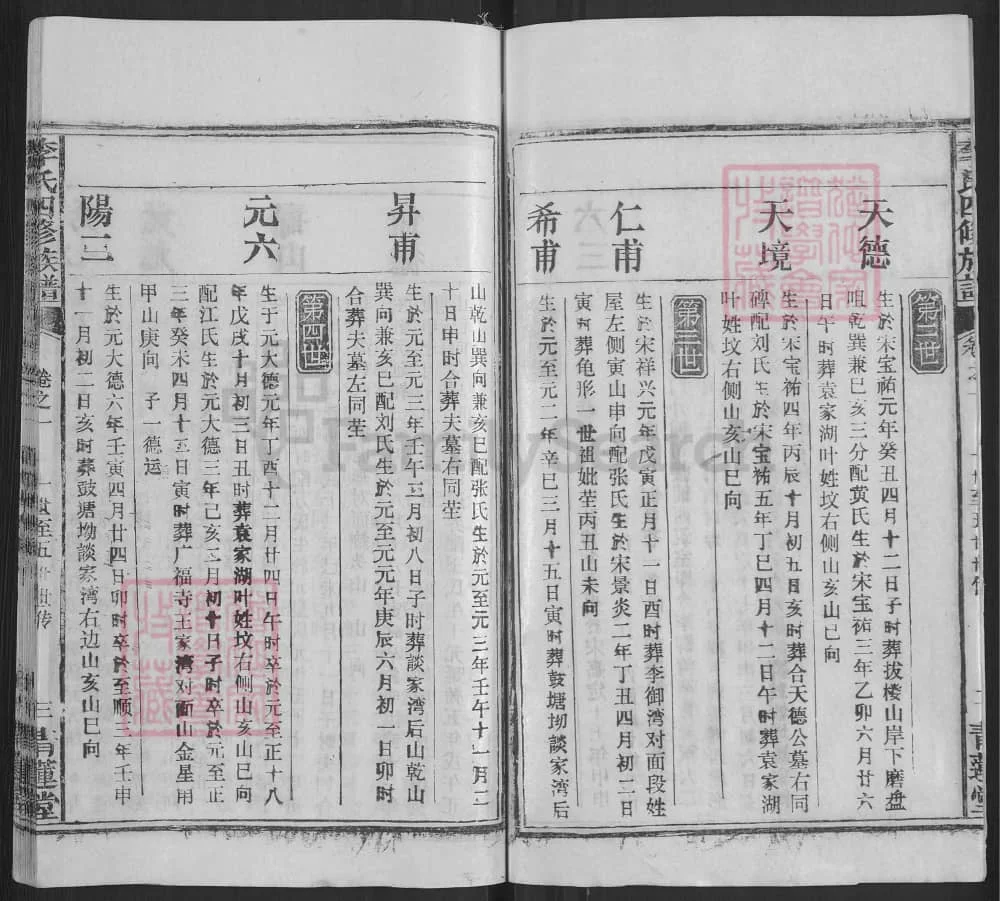 第二世
天德
生於宋宝祐元年癸丑四月十二日子时葬拔楼山岸下磨盘
咀乾巽兼巳亥三分配黄氏生於宋宝祐三年乙卯六月廿六
日午时葬袁家湖叶姓坟右侧山亥山巳向
天境
生於宋宝祐四年丙辰十月初五日亥时葬合天德公墓右同
碑配刘氏生於宋宝祐五年丁巳四月十二日午时葬袁家湖
叶姓坟右侧山亥山巳向
第三世
仁甫
生於宋祥兴元年戊寅正月十一日酉时葬李御湾对面段姓
屋左侧寅山申向配张氏生於宋景炎二年丁丑四月初二日
寅时葬龟形一世祖妣茔丙丑山未向
希甫
生於元至元二年辛巳三月十五日寅时葬鼓塘坳談家湾后
山乾山巽向兼亥巳配张氏生於元至元三年壬午十一月二
十日申时合葬夫墓右同茔
昇甫
生於元至元三年壬午五月初八日子时葬談家湾后山乾山
巽向兼亥巳配刘氏生於元至元元年庚辰六月初一日卯时
合葬夫墓左同茔
第四世
元六
生于元大德元年丁酉十二月廿四日午时卒於元至正十八
年戊戌十月初三日丑时葬袁家湖叶姓坟右侧山亥山巳向
配江氏生於元大德三年己亥三月初十日子时卒於元至正
三年癸未四月十五日寅时葬广福寺王家湾对面山金星用
甲山庚向 子一德运
陽三
生於元大德六年壬寅四月廿四日卯时卒於至顺三年壬申
十一月初二日亥时葬鼓塘坳談家湾右边山亥山巳向
李氏四修族谱
卷之一
一世至五世世传
三
青蓮堂
FamilySearch